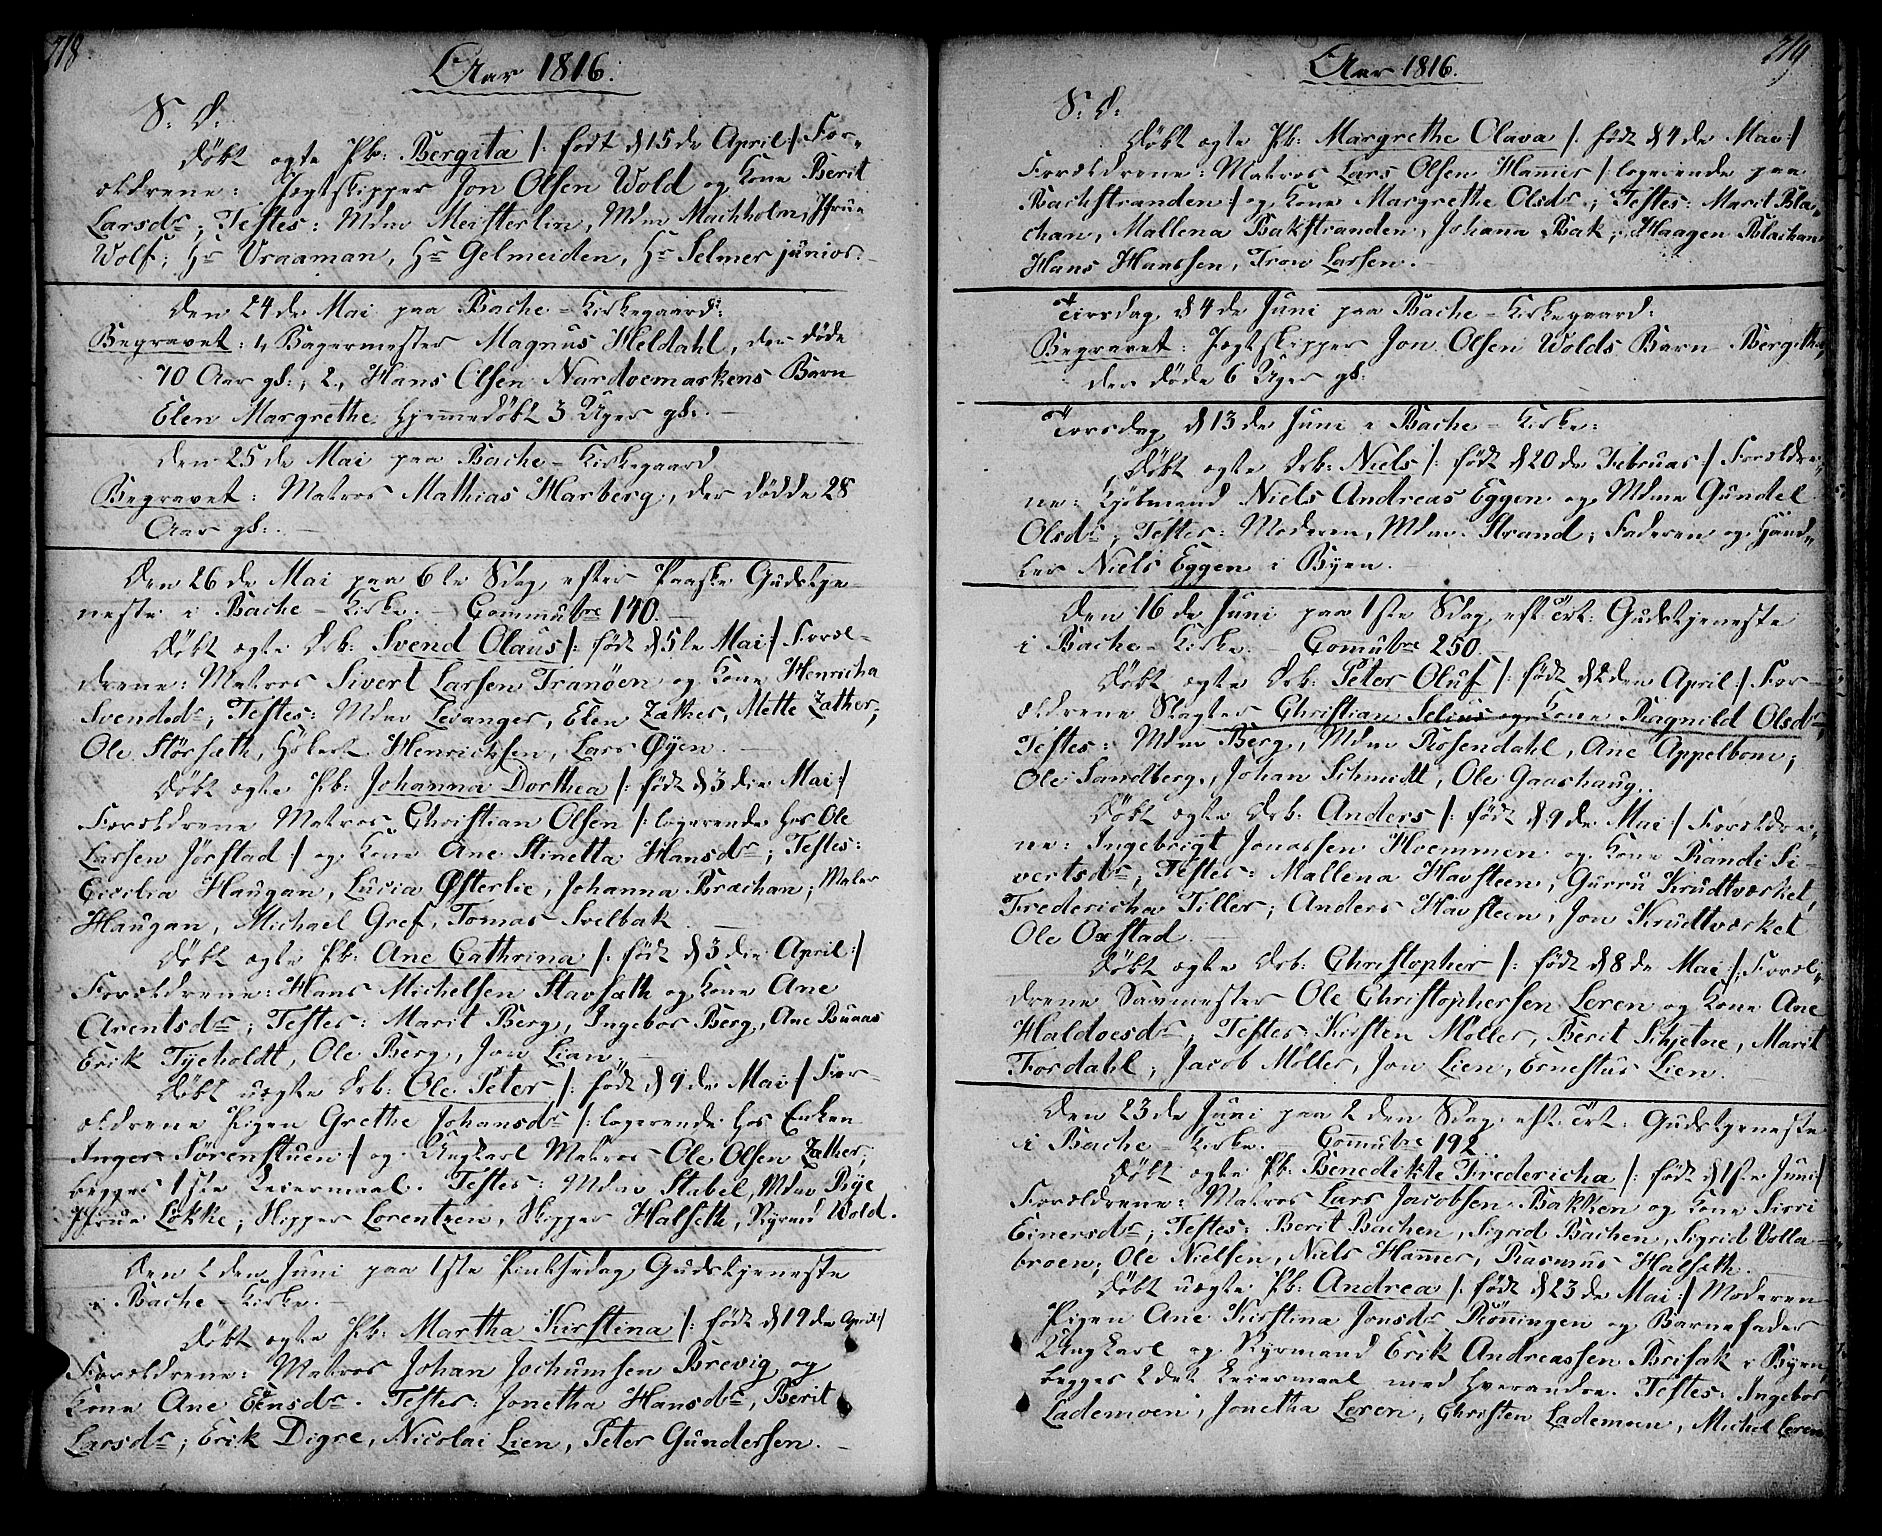 218
Aar 1816.
S: D:
Døbt ægte Pb: Bergita /: født d 15de April :/ For-
ældrene: Jægtskipper Jon Olsen Wold og Kone Berit
Larsdr; Testes: Mdm Meisterlin, Mdm Machholm, Jfrue
Wolf; Hr Vraaman, Hr Gelmeiden, Hr Selmer junior.
Den 24de Mai paa Bache-Kirkegaard:
Begravet: 1, Bagermester Magnus Heldahl, der døde
70 Aar gl:, 2, Hans Olsen Nardoemarkens Barn
Elen Margrethe hjemmedøbt 3 Uger gl:.
Den 25de Mai paa Bache-Kirkegaard
Begravet: Matros Mathias Harberg, der dødde 28
Aar gl:.
Den 26de Mai paa 6te Sdag efter Paaske Gudstje-
neste i Bache-Kirke. Commubre 140.
Døbt ægte Drb: Svend Olaus /: født d 5te Mai :/ Foræl-
drene: Matros Sivert Larsen Tranöen og Kone Henricha
Svendsdr; Testes: Mdm Levanger, Elen Zæther, Mette Zæther;
Ole Störsæth, Henrichsen, Lars Øyen.
Døbt ægte Pb: Johanna Dorthea /: født d 3die Mai :/
Forældrene Matros Christian Olsen /: logerende hos Ole
Larsen Jörstad :/ og Kone Ane Stinetta Hansdr; Testes:
Cicilia Haugan, Lucia Østerlie, Johanna Brachan; Maler
Haugan, Michael Gref, Tomas Svelbak.
Døbt ægte Pb: Ane Cathrina /: født d 3die April :/
Forældrene: Hans Michelsen Stavsæth og Kone Ane
Arentsdr; Testes: Marit Berg, Ingebor Berg, Ane Bunaas
Erik Tyeholdt, Ole Berg, Jon Lian.
Døbt uægte Drb: Ole Peter /: født d 9de Mai :/ For-
ældrene Pigen Grethe Johansdr /: logerende hos Enken
Inger Sörenstuen :/ og Ungkarl Matros Ole Olsen Zæther;
begges 1ste Leiermaal. Testes: Mdm Stabel, Mdm Rye
Jfrue Løkke; Skipper Lorentzen, Skipper Halseth, Styrmd Wold.
Den 2den Juni paa 1ste Pintsedag Gudstjeneste
i Bache-Kirke.
Døbt ægte Pb: Martha Kirstina /: født d 19de April :/
Forældrene: Matros Johan Jochumsen Brevig og
Kone Ane Eensdr. Testes: Jonetha Hansdr, Berit
Larsdr; Erik Digre, Nicolai Lien, Peter Gundersen.
219
Aar 1816.
S: D:
Døbt ægte Pb: Margrethe Olava /: født d 4de Mai :/
Forældrene: Matros Lars Olsen Hammer /: logerende paa
Bachstranden :/ og Kone Margrethe Olsdr; Testes: Marit Bla-
chan, Mallena Bakstranden, Johana Bak; Haagen Blachan
Hans Hanssen, Trow Larsen.
Tirsdag d 4de Juni paa Bache-Kirkegaard:
Begravet: Jægtskipper Jon Olsen Wolds Barn Bergitha,
den døde 6 Uger gl:
Torsdag d 13de Juni i Bache-Kirke:
Døbt ægte Drb: Niels /: født d 20de Februar :/ Forældre-
ne: Kjøbmand Niels Andreas Eggen og Mdme Gundel
Olsdr; Testes: Moderen, Mdm Strand; Faderen og Hand-
ler Niels Eggen i Byen.
Den 16de Juni paa 1ste Sdag eft: Trt: Gudstjeneste
i Bache-Kirke. Commubre 250.
Døbt ægte Drb: Peter Oluf /: født d 2den April :/ For-
ældrene Slagter Christian Selius og Kone Ragnild Olsdr;
Testes: Mdm Berg, Mdm Rosendahl, Ane Appelbom;
Ole Sandberg, Johan Schmidt, Ole Gaashaug.
Døbt ægte Drb: Anders /: født d 9de Mai :/ Forældre-
ne: Ingebrigt Jonassen Hoemmen og Kone Randi Si-
vertsdr; Testes: Mallena Havsteen, Gurru Krudtværket,
Fredericha Tiller; Anders Havsteen, Jon Krudtværket
Ole Oxstad.
Døbt ægte Drb: Christopher /: født d 8de Mai :/ Foræl-
drene Savmester Ole Christophersen Leren og Kone Ane
Haldoesdr; Testes Kirsten Møller, Berit Schjetne, Marit
Fordahl; Jacob Møller, Jon Lien, Ernestus Lien.
Den 23de Juni paa 2den Sdag eft: Trt: Gudstjeneste
i Bache-Kirke. Commubre 192.
Døbt ægte Pb: Benedikte Fredericha /: født d 1ste Juni :/
Forældrene: Matros Lars Jacobsen Bakken og Kone Sirri
Einersdr; Testes: Berit Bachen, Sigrid Bachen, Sigrid Volla-
broen; Ole Nielsen, Niels Hammer, Rasmus Halseth.
Døbt uægte Pb: Andrea /: født d 23de Mai :/ Moderen
Pigen Ane Kirstina Jonsdr Röningen og Barnefader
Ungkarl og Styrmand Erik Andreassen Brisak i Byen,
begges 2det Leiermaal med hverandre. Testes: Ingebor
Lademoen, Jonetha Leren; Christen Lademoen, Michel Leren